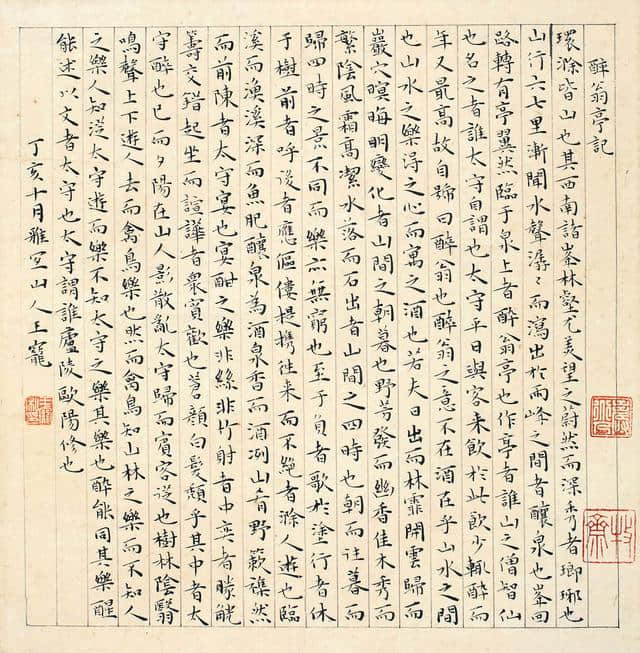 醉翁亭記
環滁皆山也其西南諸峯林壑尤美望之蔚然而深秀者瑯琊也
山行六七里漸聞水聲潺〻而瀉出於兩峰之間者釀泉也峯回
路轉有亭翼然臨于泉上者醉翁亭也作亭者誰山之僧智仙
也名之者誰太守自謂也太守平日與客来飲於此飲少輒醉而
年又最髙故自號曰醉翁也醉翁之意不在酒在乎山水之間
也山水之樂得之心而寓之酒也若夫日出而林霏開雲歸而
巖穴暝晦明變化者山間之朝暮也野芳發而幽香佳木秀而
繁陰風霜髙潔水落而石出者山間之四時也朝而往暮而
歸四時之景不同而樂亦無窮也至于負者歌於塗行者休
于樹前者呼後者應傴僂提携往来而不絶者滁人遊也臨
溪而漁溪深而魚肥釀泉為酒泉香而酒冽山肴野蔌襍然
而前陳者太守宴也宴酣之樂非絲非竹射者中奕者勝觥
籌交錯起坐而諠譁者衆賔歡也蒼顔白髮頽乎其中者太
守醉也已而夕陽在山人影散亂太守歸而賔客從也樹林陰翳
鳴聲上下遊人去而禽鳥樂也然而禽鳥知山林之樂而不知人
之樂人知從太守遊而樂不知太守之樂其樂也醉能同其樂醒
能述以文者太守也太守謂誰廬陵歐陽修也
丁亥十月雅宜山人王寵